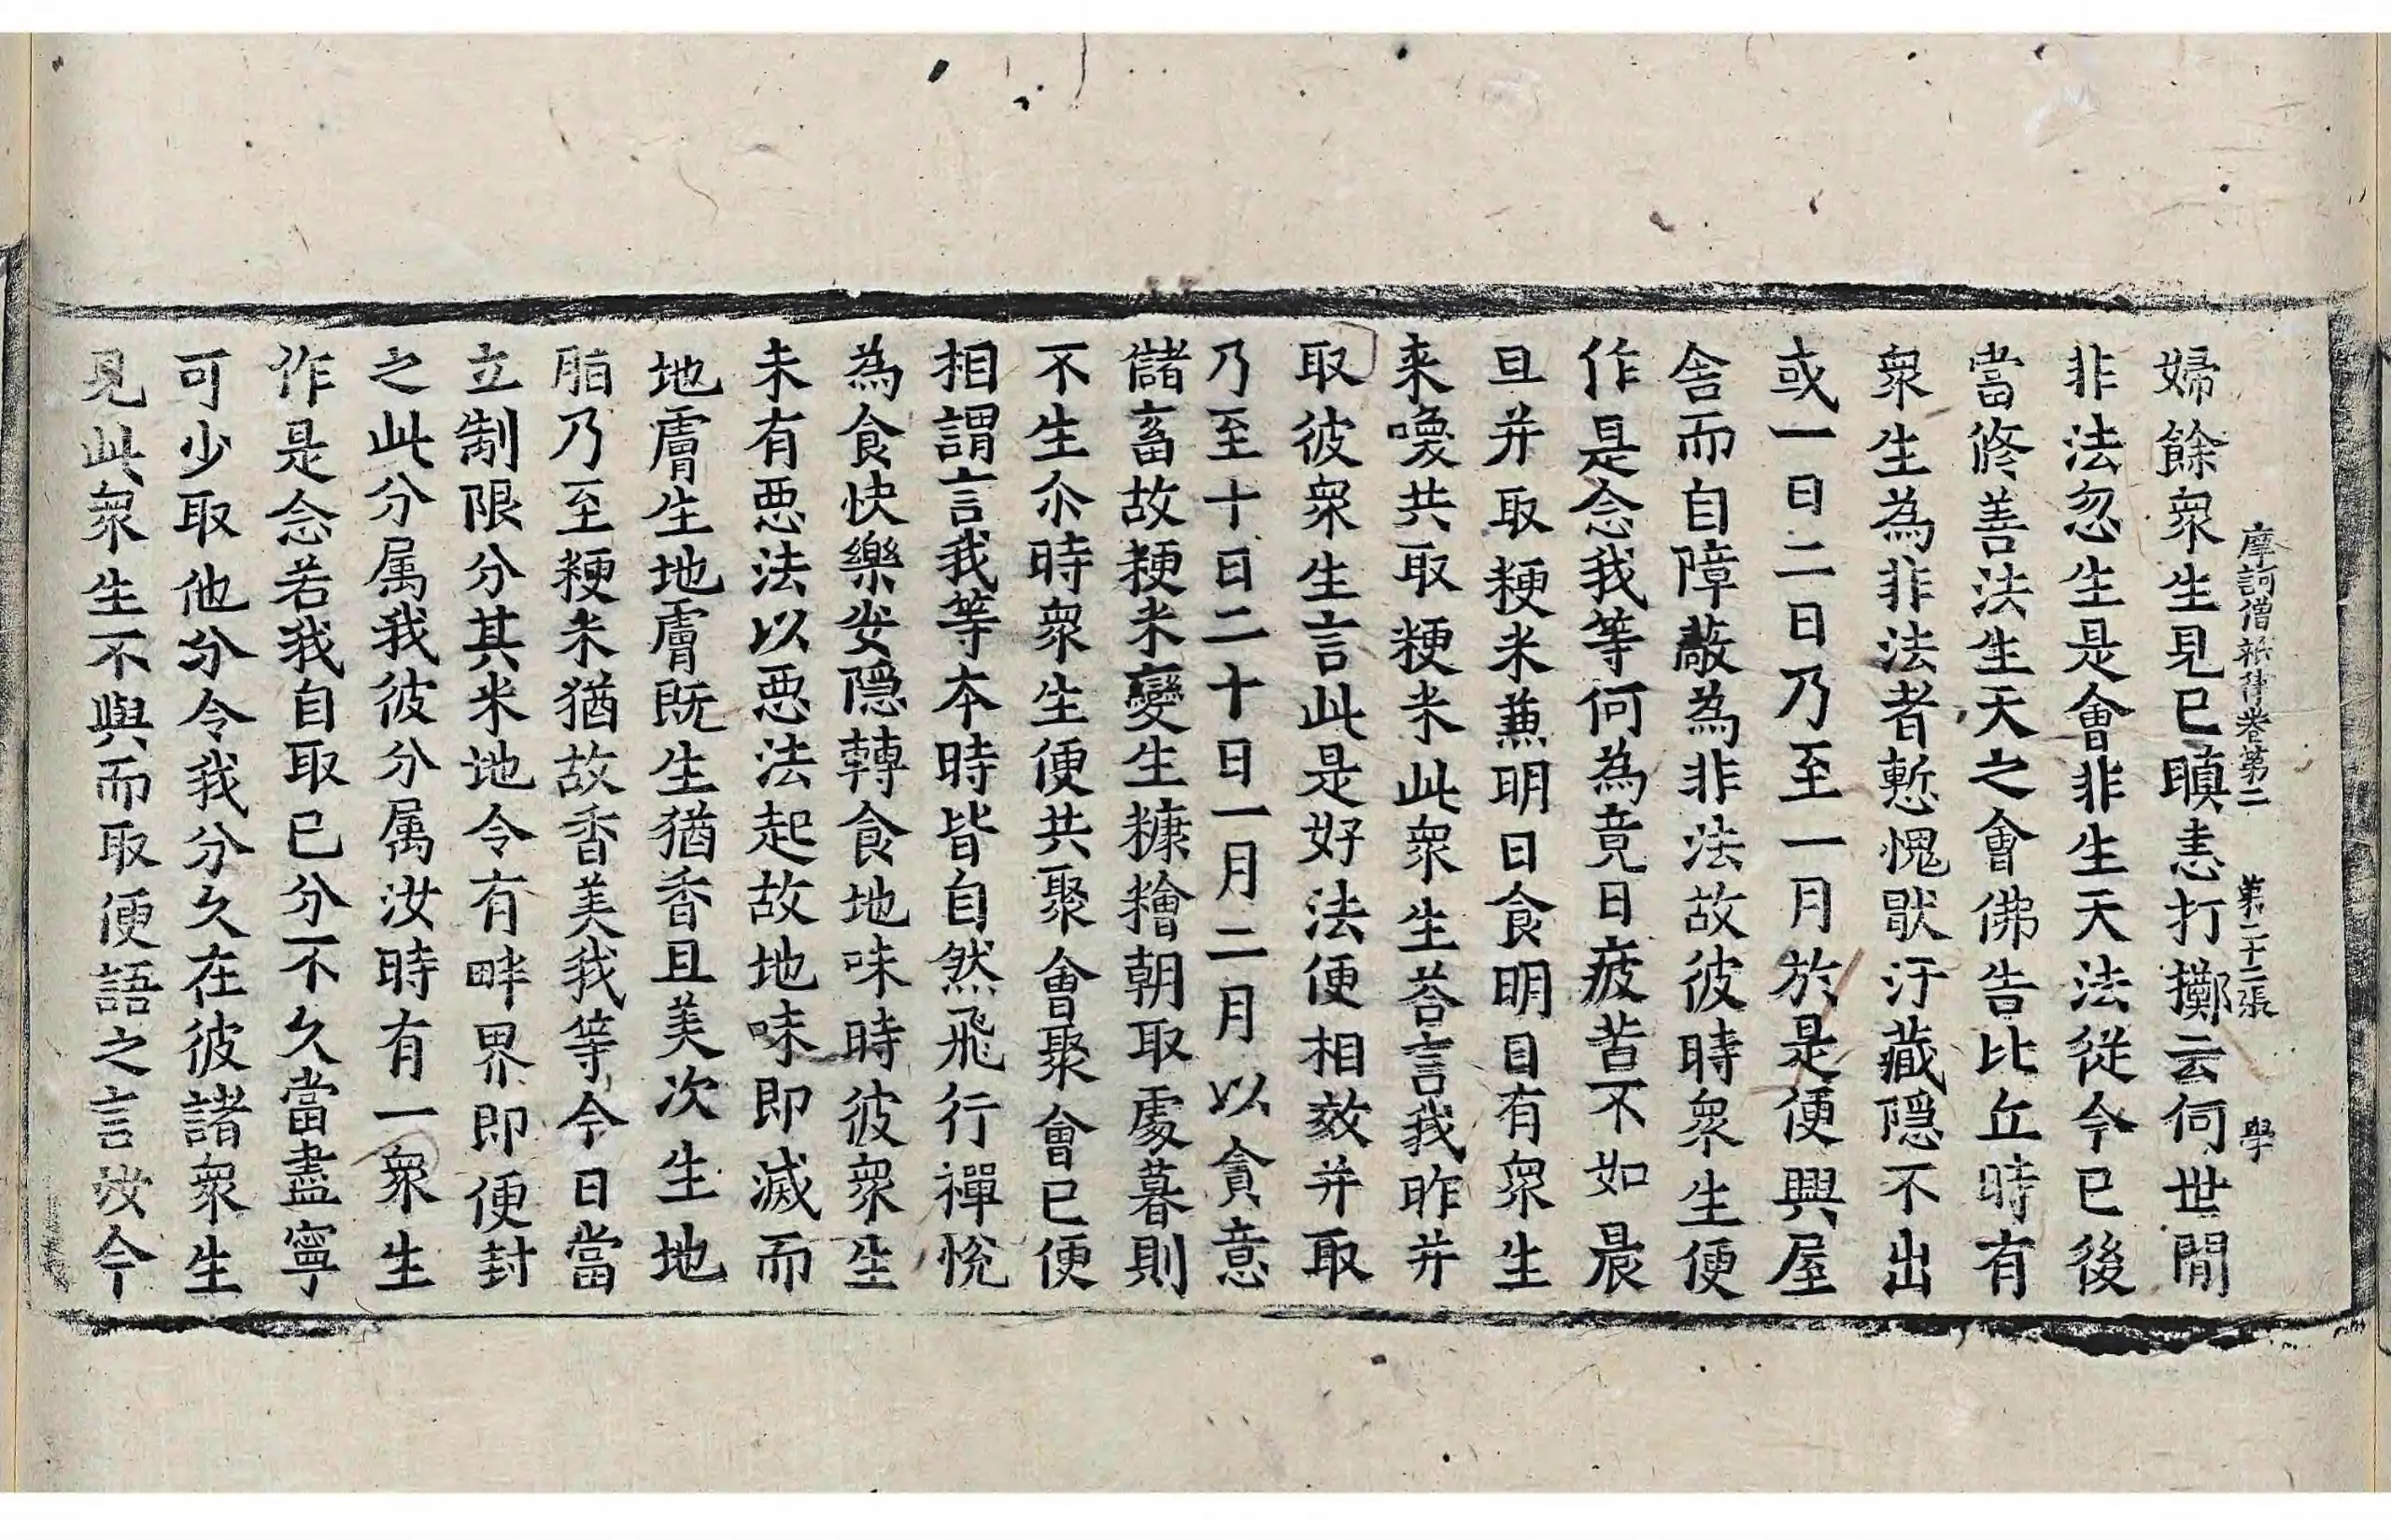 摩訶僧祇律卷第二 第二十二張 學
婦餘衆生見已瞋恚打擲云何世閒
非法忽生是會非生天法從今已後
當修善法生天之會佛告比丘時有
衆生為非法者慙愧猒汙藏隠不出
或一日二日乃至一月於是便興屋
舎而自障蔽為非法故彼時衆生便
作是念我等何為竟日疲苦不如晨
旦并取粳米兼明日食明日有衆生
来喚共取粳米此衆生荅言我昨并
取彼衆生言此是好法便相效并取
乃至十日二十日一月二月以貪意
儲畜故粳米變生糠糩朝取處暮則
不生尒時衆生便共聚會聚會已便
相謂言我等本時皆自然飛行禪悅
為食快樂安隠轉食地味時彼衆生
未有惡法以惡法起故地味即滅而
地膚生地膚既生猶香且美次生地
脂乃至粳米猶故香美我等今日當
立制限分其米地令有畔界即便封
之此分属我彼分属汝時有一衆生
作是念若我自取已分不久當盡寧
可少取他分令我分久在彼諸衆生
見此衆生不與而取便語之言汝今